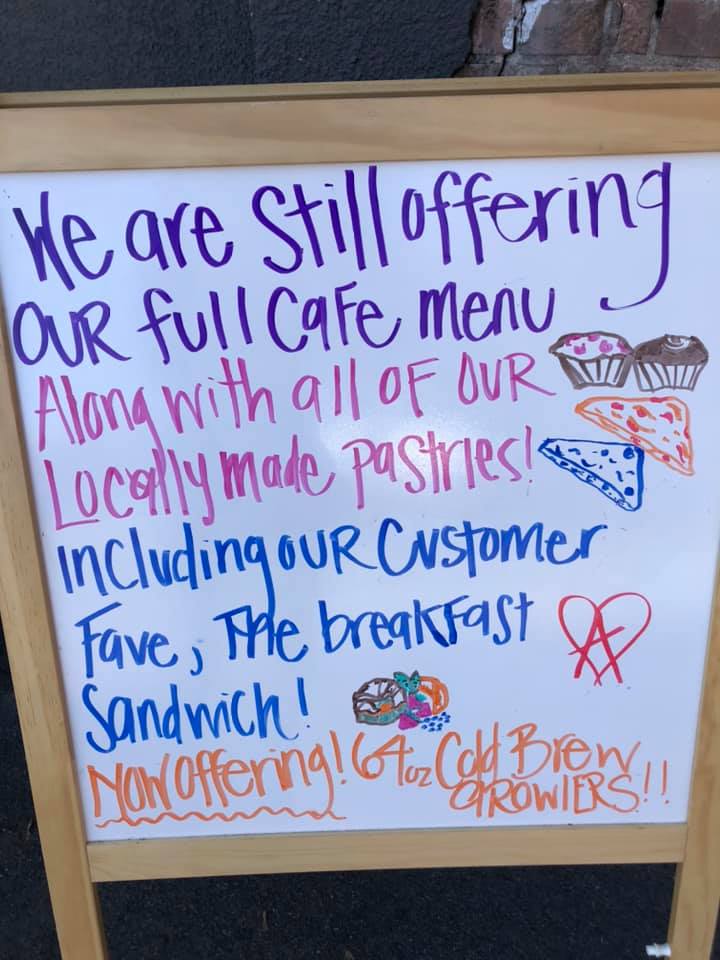 We are Still offering
OUR full Cafe menu
Along with all OF OUR
Locally made pastries!
Including OUR Customer
Fave, The breakfast
A
Sandwich!
Now Offering! 64oz Cold Brew
GROWlERS!!